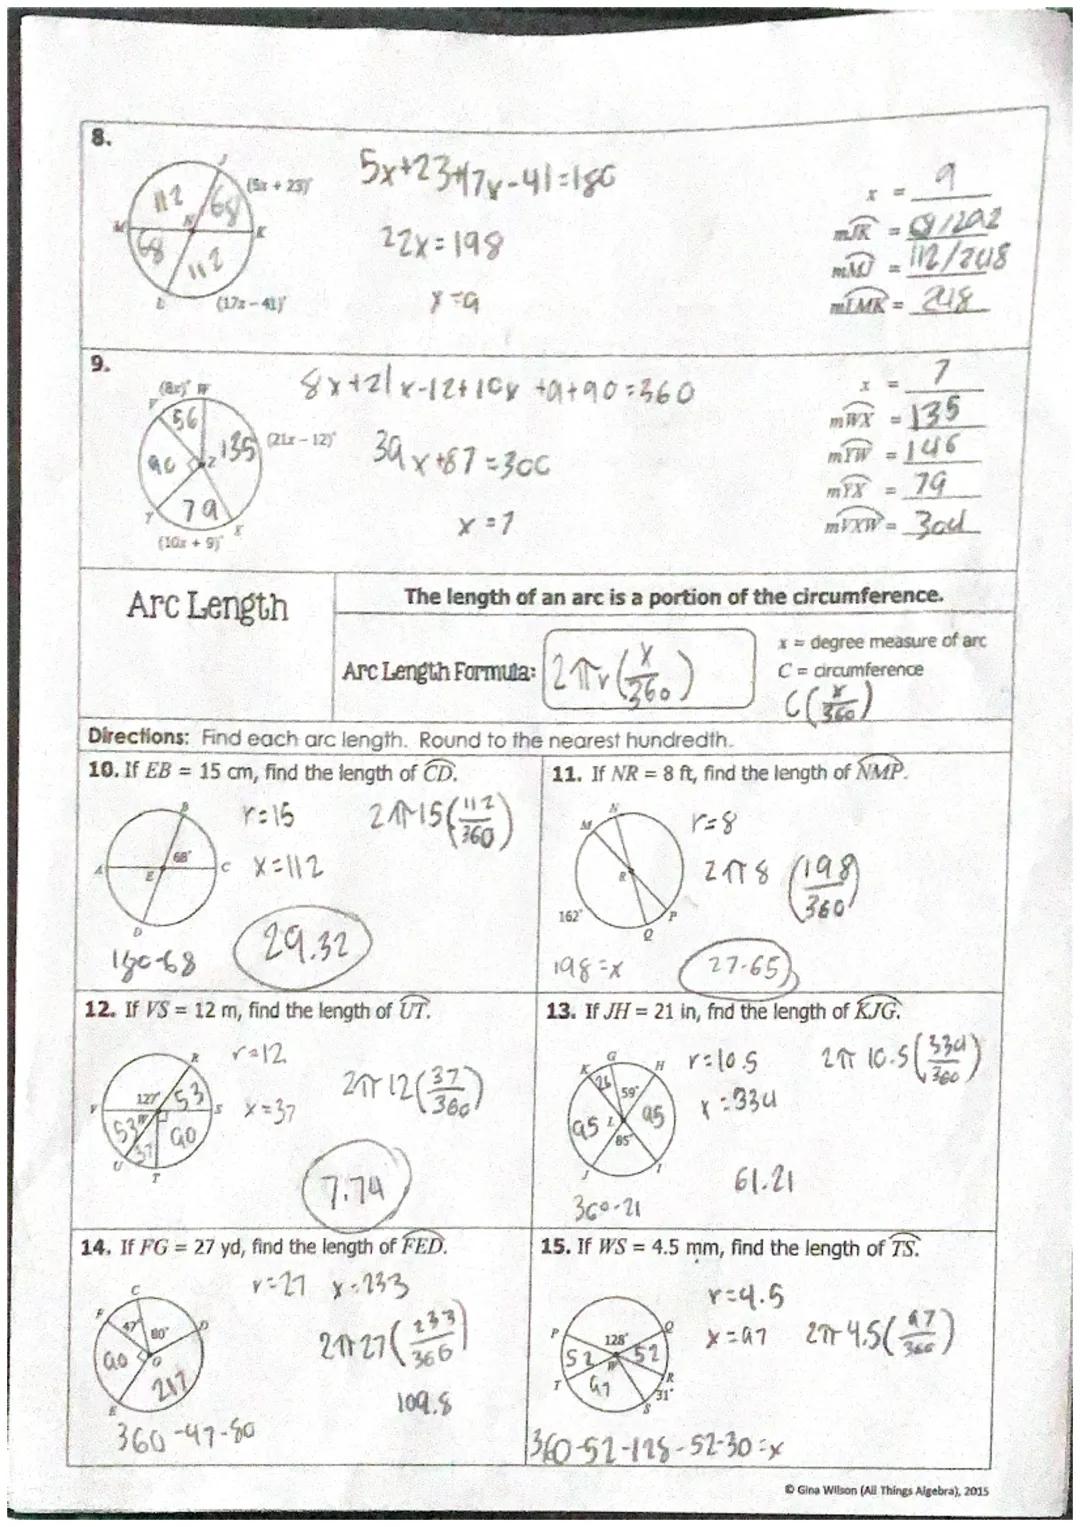 8.
J
(5x + 23)°
112
68
M
N
K
68
112
L
(17x – 41)°
5x+23+17x-41=180
22x=198
x=9
x = 9
mJK = 68/292
mMJ = 112/248
mLMK = 248
9.
(8x)° W
V
56
135
(21x – 12)°
90
Z
79
Y
X
(10x + 9)°
8x+21x-12+10x+9+90=360
39x+87=360
x=7
x = 7
mWX = 135
mYW = 146
mYX = 79
mVXW = 304
Arc Length
The length of an arc is a portion of the circumference.
Arc Length Formula:
2πr(x/360)
x = degree measure of arc
C = circumference
C(x/360)
Directions: Find each arc length. Round to the nearest hundredth.
10. If EB = 15 cm, find the length of CD.
B
68°
A
E
C
D
r=15
x=112
2π15(112/360)
180-68
29.32
11. If NR = 8 ft, find the length of NMP.
N
M
R
162°
P
Q
r=8
2π8 (198/360)
198=x
27.65
12. If VS = 12 m, find the length of UT.
R
127°
53
V
S
53
W
90
37
U
T
r=12
x=37
2π12(37/360)
7.74
13. If JH = 21 in, fnd the length of KJG.
G
K
H
26
59°
95
L
95
85°
J
I
r=10.5
x=334
2π 10.5(334/360)
61.21
360-21
14. If FG = 27 yd, find the length of FED.
C
F
47°
80°
D
90
G
217
E
r=27 x=233
2π27(233/360)
109.8
360-47-80
15. If WS = 4.5 mm, find the length of TS.
P
128°
Q
52
W
52
T
97
R
31°
S
r=4.5
x=97
2π4.5(97/360)
360-52-128-52-30=x
© Gina Wilson (All Things Algebra), 2015